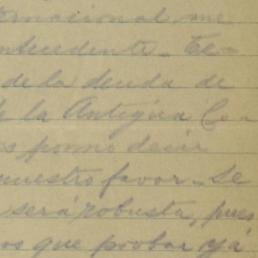 ternacional me
antecedente. Te-
de la deuda de
de la Antigua Co
os ponno decir
nuestro favor. Se
será robusta, pues
os que probar ya